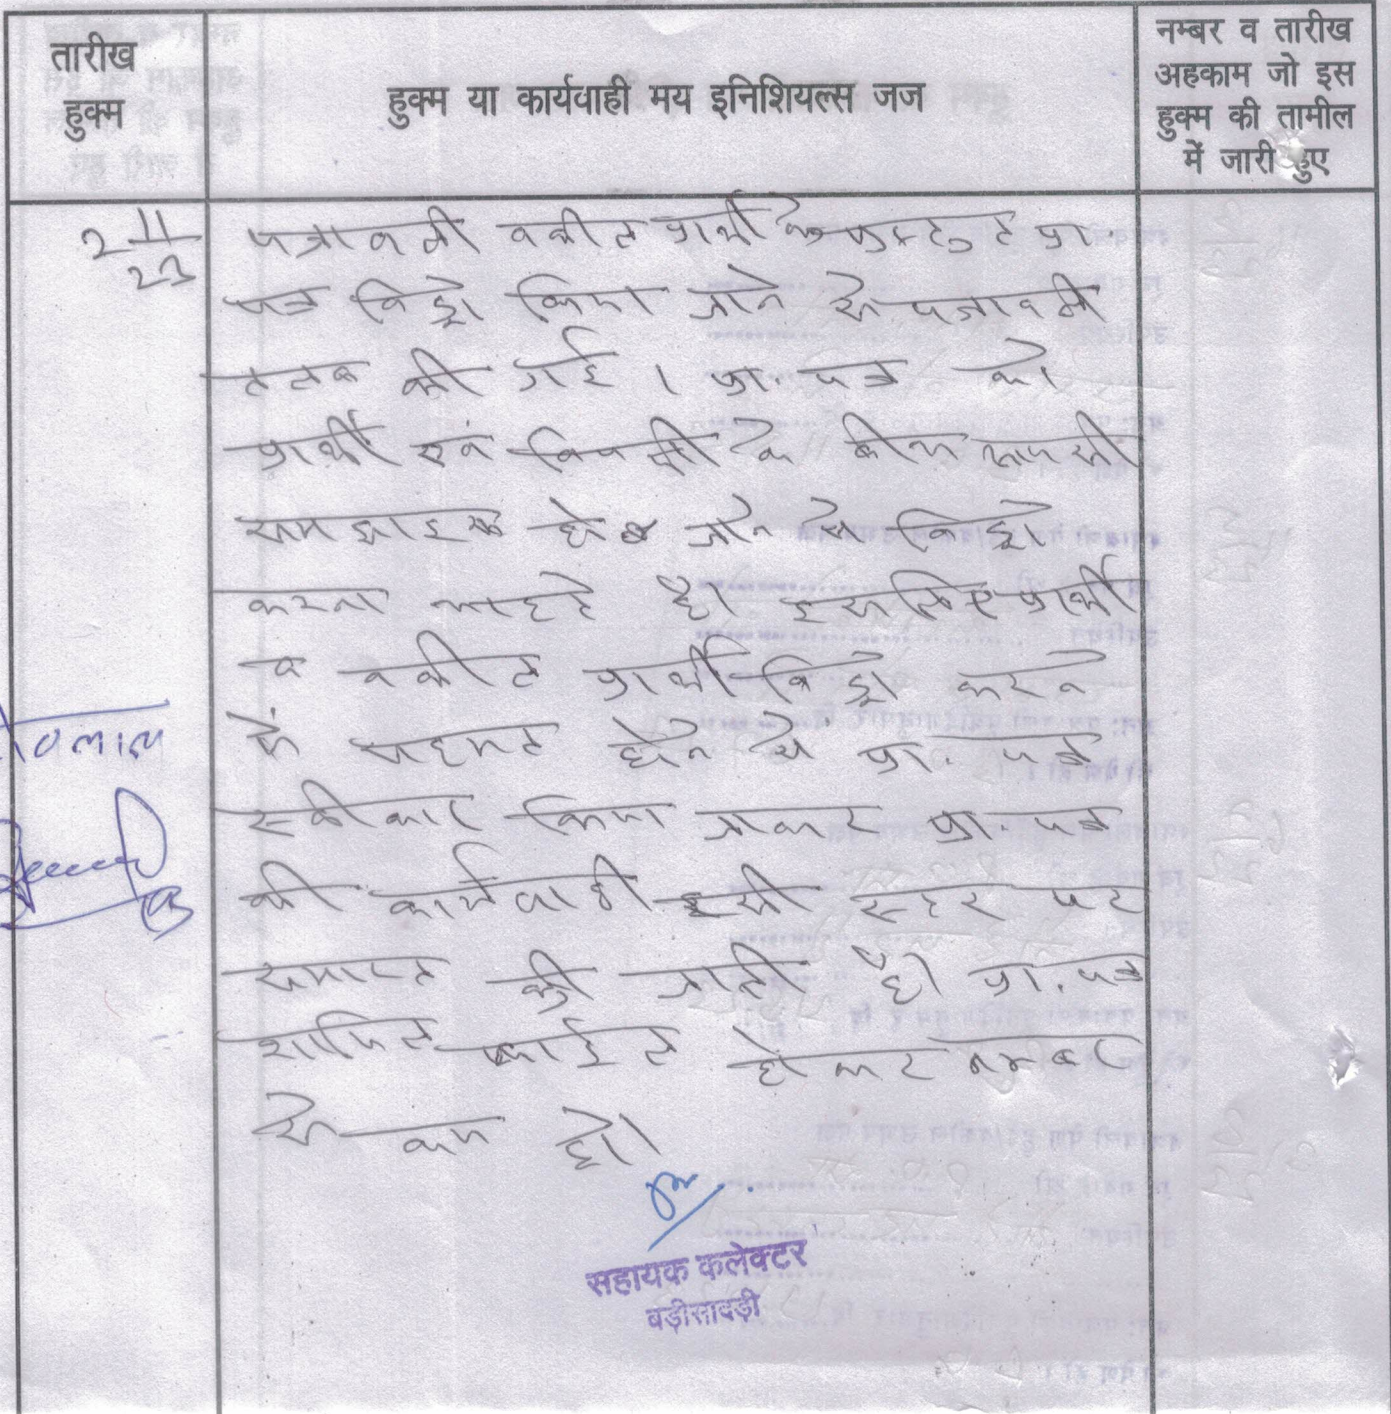 तारीख
हुक्म
हुक्म या कार्यवाही मय इनिशियल्स जज
नम्बर व तारीख
अहकाम जो इस
हुक्म की तामील
में जारी हुए
2 11/23
पत्रावली वकील प्रार्थी के प्रा.
पत्र विड्रो किया जाने से पत्रावली
तलब की गई। प्रा. पत्र को
प्रार्थी एवं विपक्षी के बीच आपसी
समझाइश हो जाने से विड्रो
करना चाहते है। इसलिए प्रार्थी
व वकील प्रार्थी विड्रो करने
में सहमत होने से प्रा. पत्र
स्वीकार किया जाकर प्रा. पत्र
की कार्यवाही इसी स्तर पर
समाप्त की जाती है। प्रा. पत्र
शामिल फाईल होकर नम्बर
से कम हो।
सहायक कलेक्टर
बड़ीसादड़ी